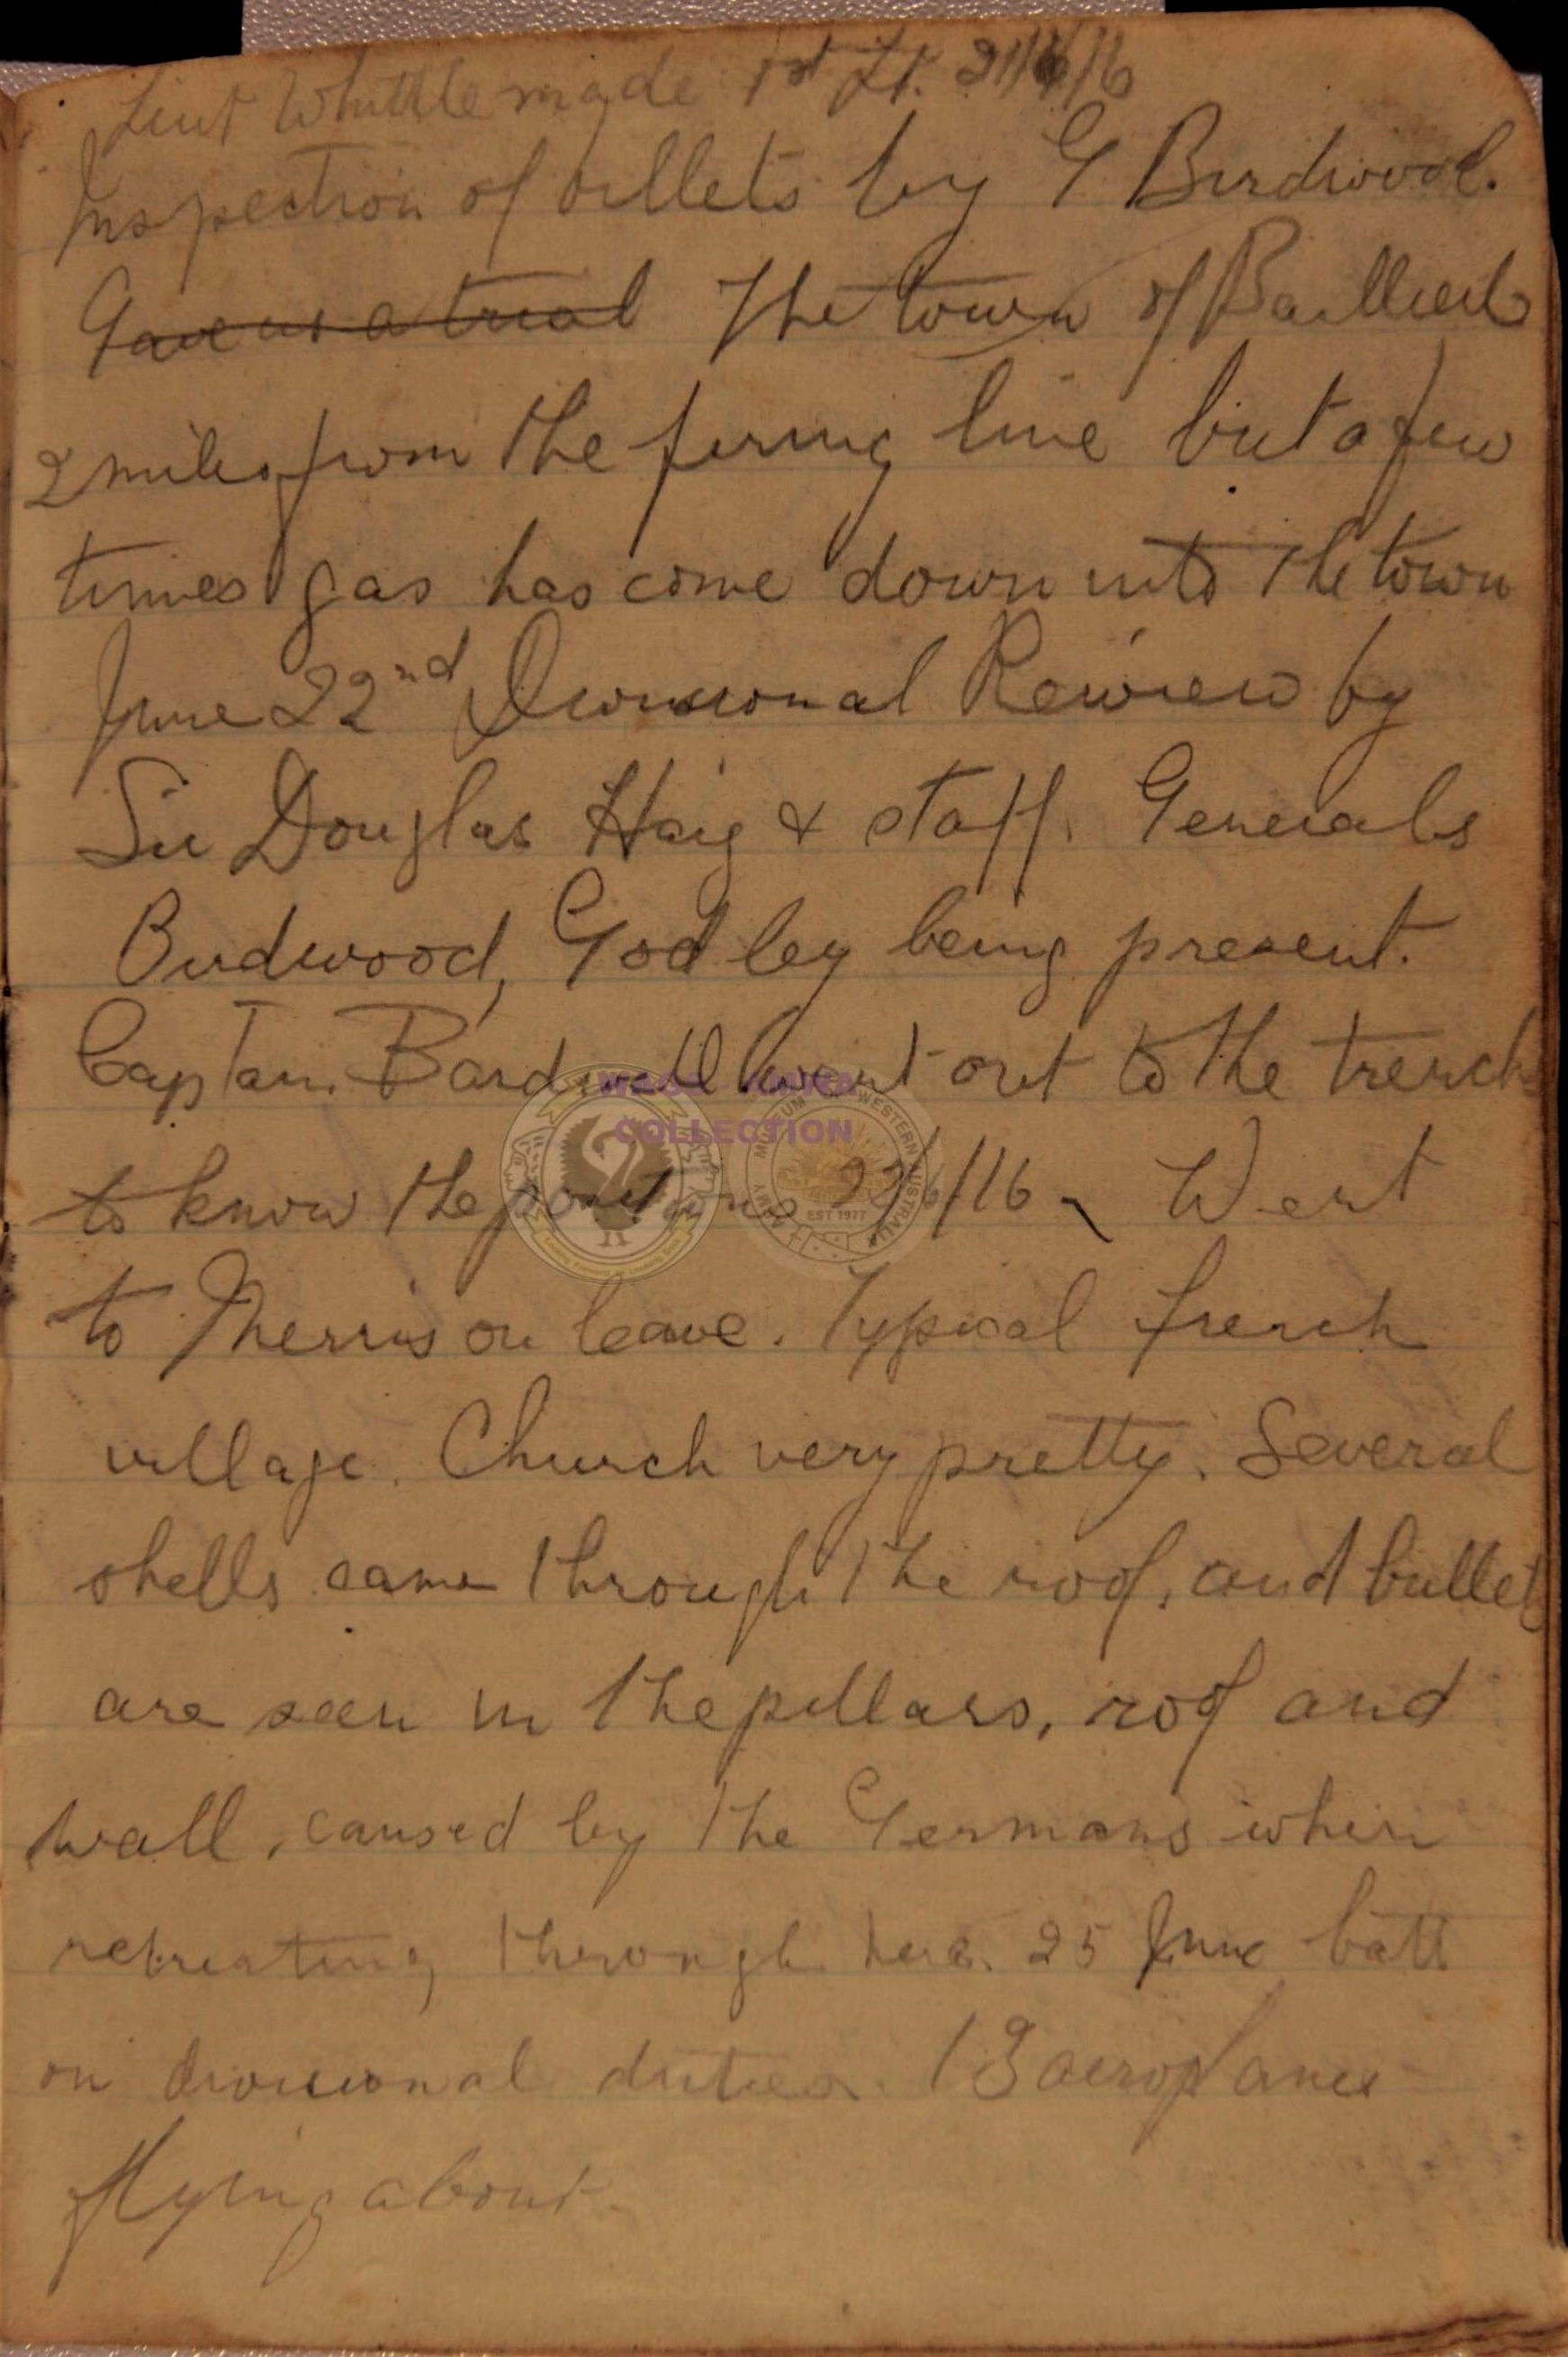 Liut Whittle made 1st Lt. 21/6/16
Inspection of billets by G Birdwood.
Gave us a trial The town of Bailleul
2 miles from the firing line but a few
times gas has come down into the town
June 22nd Divisional Review by
Sir Douglas Haig & staff. Generals
Birdwood, Godley being present.
Captain Bardwell went out to the trench
to know the positions 22/6/16 Went
to Merris on leave. Typical french
village. Church very pretty. Several
shells came through the roof, and bullet
are seen in the pillars, roof and
wall, caused by the Germans when
retreating through here. 25 June batt
on divisional duties. 13 aeroplanes
flying about.
WAGS AMWA
COLLECTION
ARMY MUSEUM OF WESTERN AUSTRALIA
EST 1977